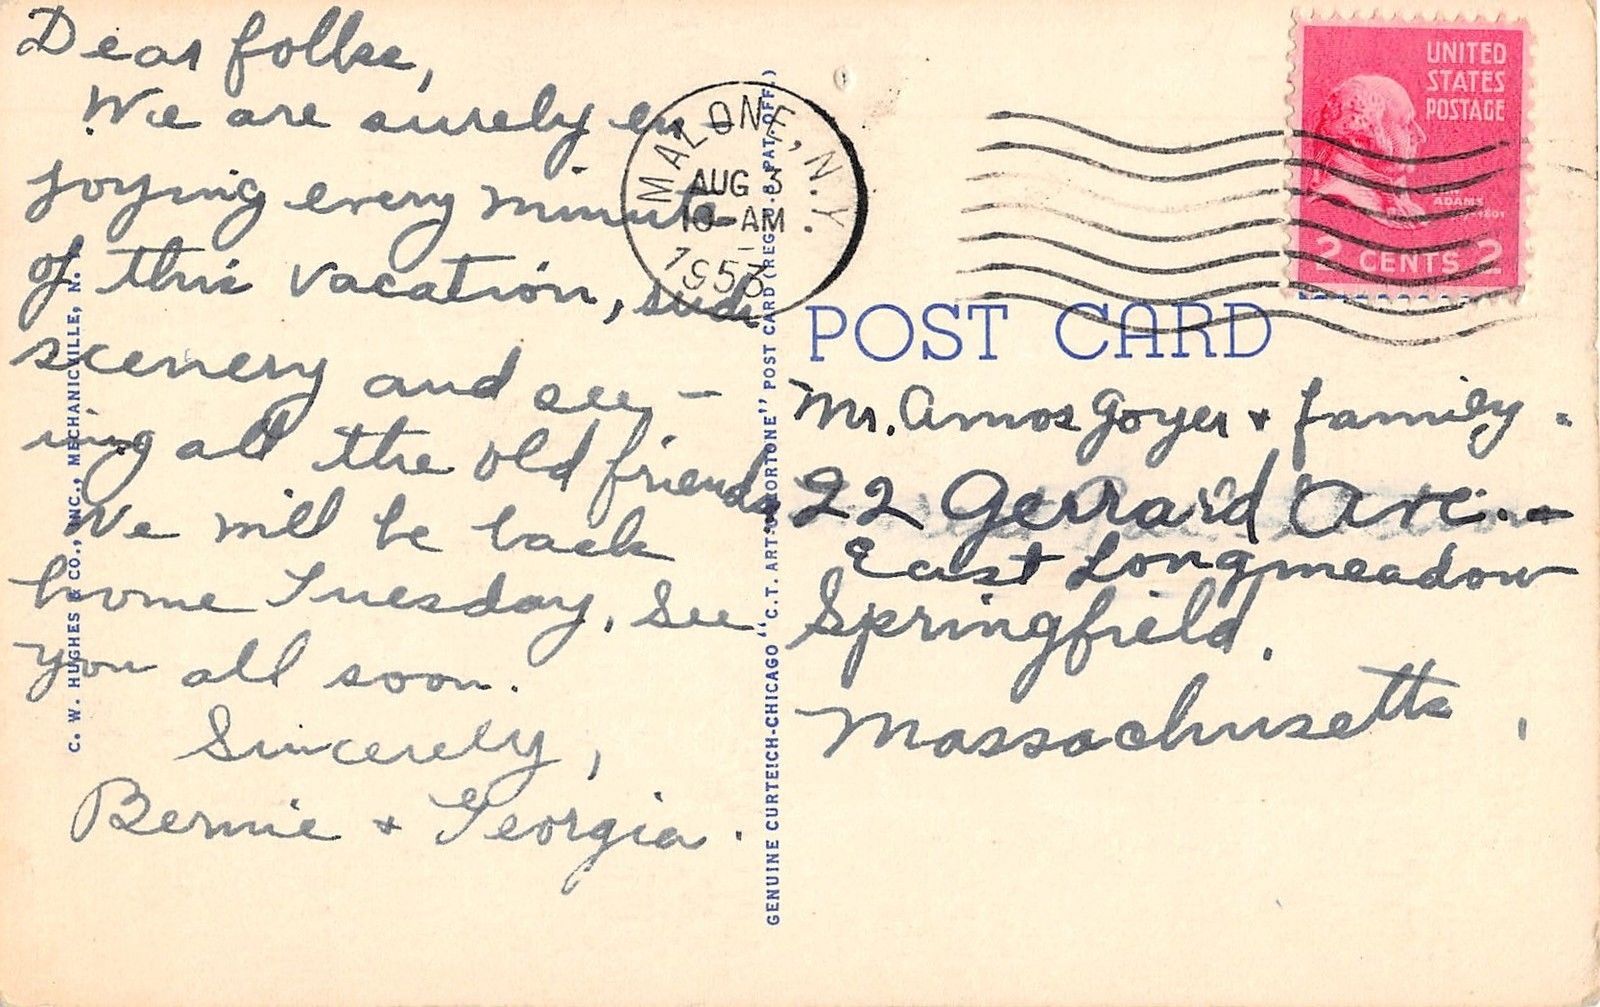 Dear folks,
We are surely en-
joying every minute
of this vacation, such
scenery and see-
ing all the old friends
We will be back
home Tuesday. See
you all soon.
Sincerely,
Bernie + Georgia.
C. W. HUGHES & CO., INC., MECHANICVILLE, N. Y.
GENUINE CURTEICH-CHICAGO "C.T. ART-COLORTONE" POST CARD (REG. U.S. PAT. OFF.)
MALONE, N.Y.
AUG 3
10 AM
1953
UNITED
STATES
POSTAGE
ADAMS
2 CENTS 2
POST CARD
Mr. Amos Goyer + family.
22 Gerrard Ave.-
East Longmeadow
Springfield.
Massachusetts,